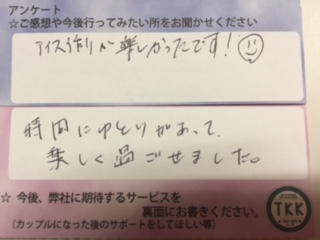 アンケート
☆ご感想や今後行ってみたい所をお聞かせください
アイス作りが楽しかったです!
時間にゆとりがあって、
楽しく過ごせました。
☆ 今後、弊社に期待するサービスを
裏面にお書きください。
(カップルになった後のサポートをしてほしい等)
TKK